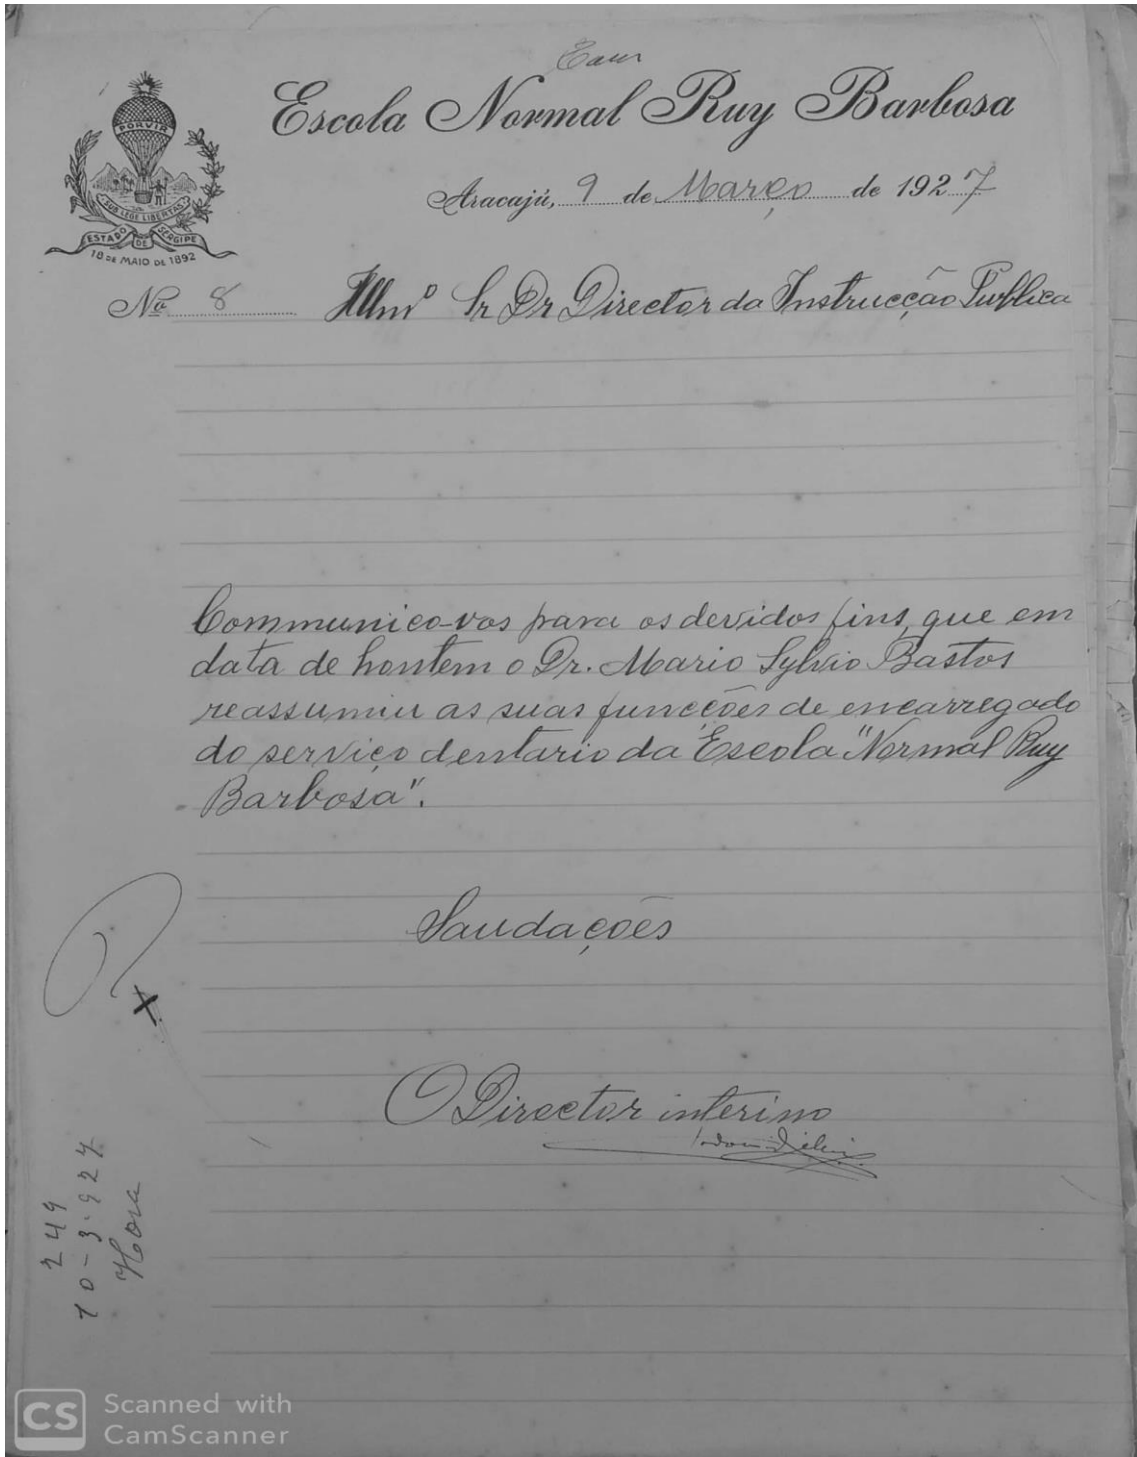 Escola Normal Ruy Barbosa
PORVIR
SUB LEGE LIBERTAS
ESTADO DE SERGIPE
18 DE MAIO DE 1892
Aracajú, 9 de Março de 1927
No 8
Illmo Sr Dr Director da Instrucção Publica
Communico-vos para os devidos fins, que em
data de hontem o Dr. Mario Sylvio Bastos
reassumiu as suas funcções de encarregado
do serviço dentario da Escola "Normal Ruy
Barbosa".
Saudações
O Director interino
249
10-3-927
Hora
CS Scanned with
CamScanner